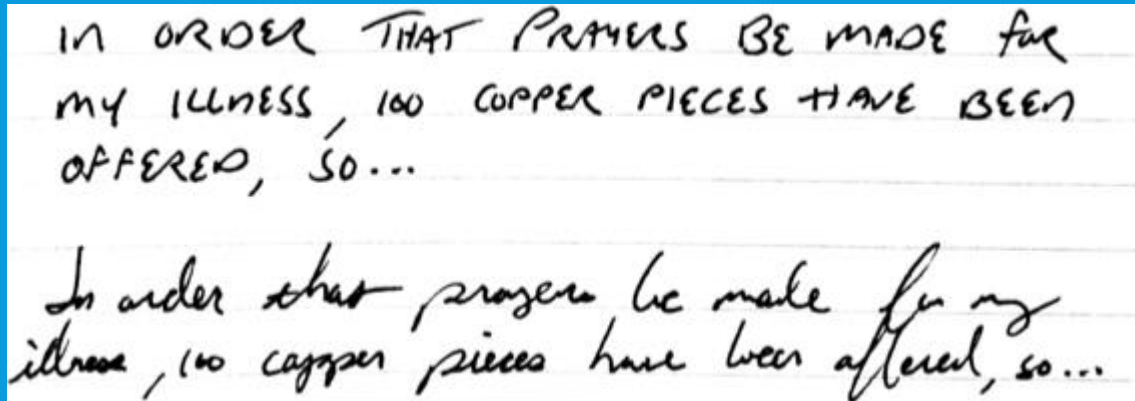 IN ORDER THAT PRAYERS BE MADE for
my ILLNESS, 100 COPPER PIECES HAVE BEEN
OFFERED, SO...
In order that prayers be made for my
illness, 100 copper pieces have been offered, so...